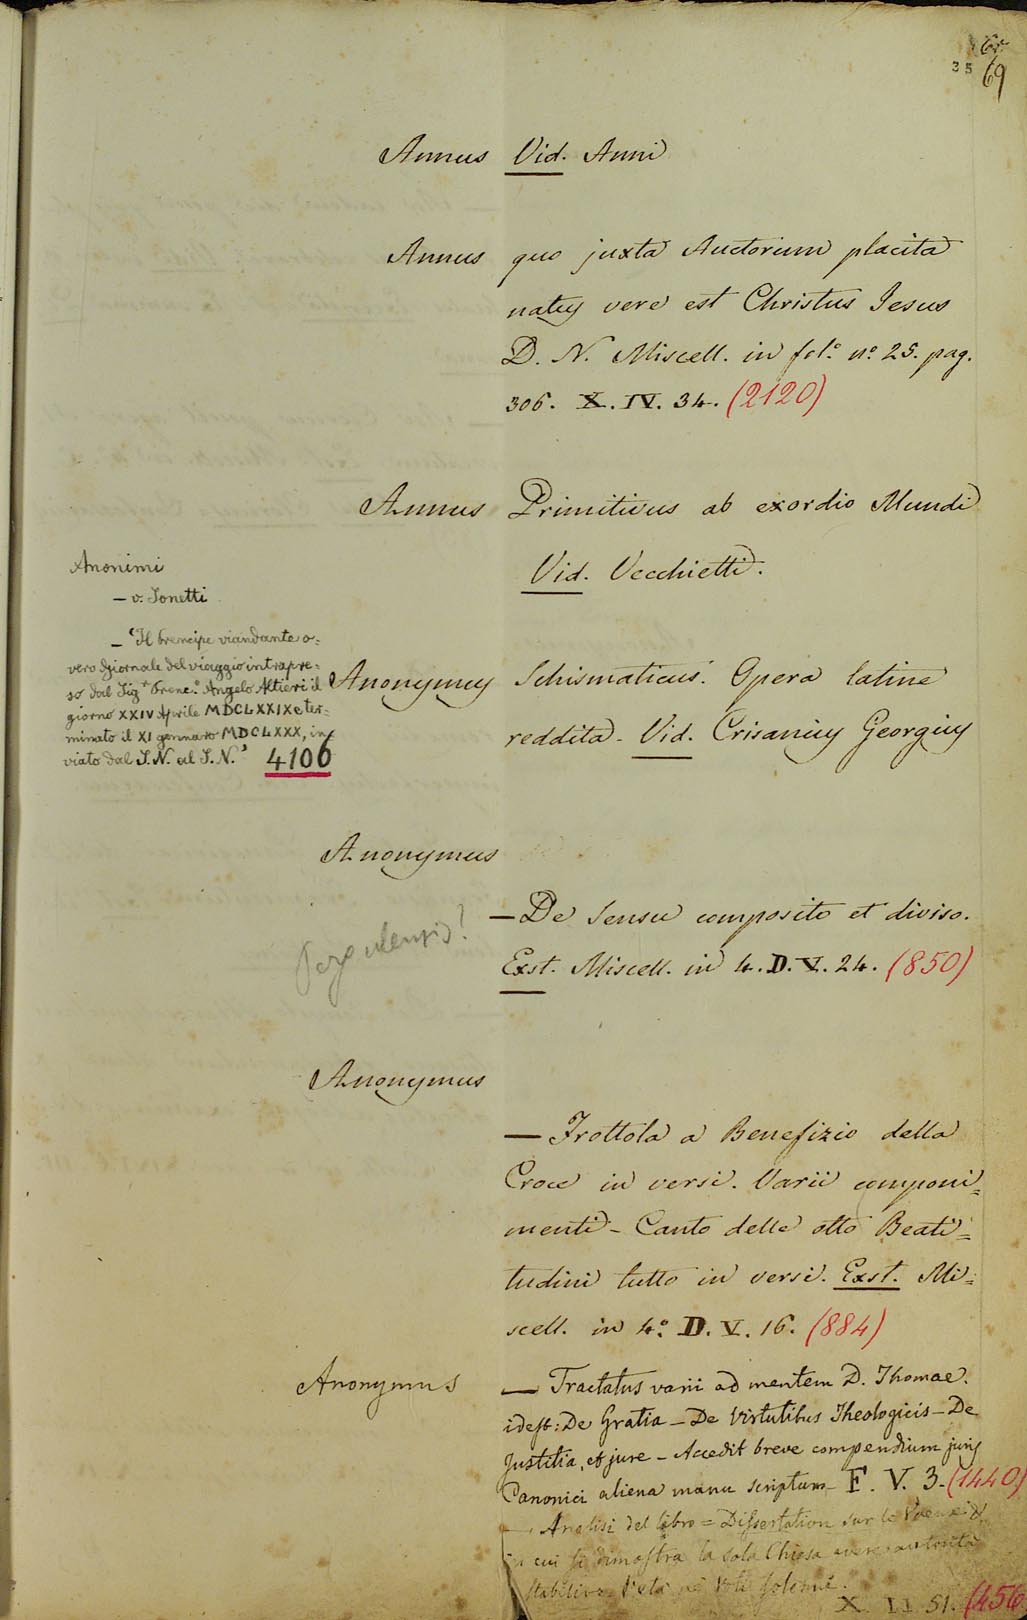 35 69
Annus Vid. Anni
Annus quo juxta Auctorum placita
natus vere est Christus Iesus
D. N. Miscell. in fol.º nº. 25. pag.
306. X. IV. 34. (2120)
Annus Primitivus ab exordio Mundi
Vid. Vecchietti.
Anonimi
– v. Tonetti
– Il Prencipe viandante o=
vero Giornale del viaggio intrapre=
so dal Sig.r Prenc.e Angelo Altieri il
giorno XXIV Aprile MDCLXXIX e ter=
minato il XI gennaro MDCLXXX, in
viato dal S.N. al S.N. 4106
Anonymus Schismaticus. Opera latine
reddita – Vid. Crisanius Georgius
Anonymus
– De Sensu composito et diviso.
Exst. Miscell. in 4. D. V. 24. (850)
Pergulensis?
Anonymus
– Frottola a Benefizio della
Croce in versi. Varii componi=
menti – Canto delle otto Beati=
tudini tutto in versi. Exst. Mi=
scell. in 4º. D. V. 16. (884)
Anonymus – Tractatus varii ad mentem D. Thomae.
idest: De Gratia – De Virtutibus Theologicis – De
Justitia, et jure – Accedit breve compendium juris
Canonici aliena manu scriptum – F. V. 3. (1440)
– Analisi del libro = Dissertation sur le
in cui si dimostra la sola Chiesa avere autorità
stabilire voti solenni.
X. 51. (456